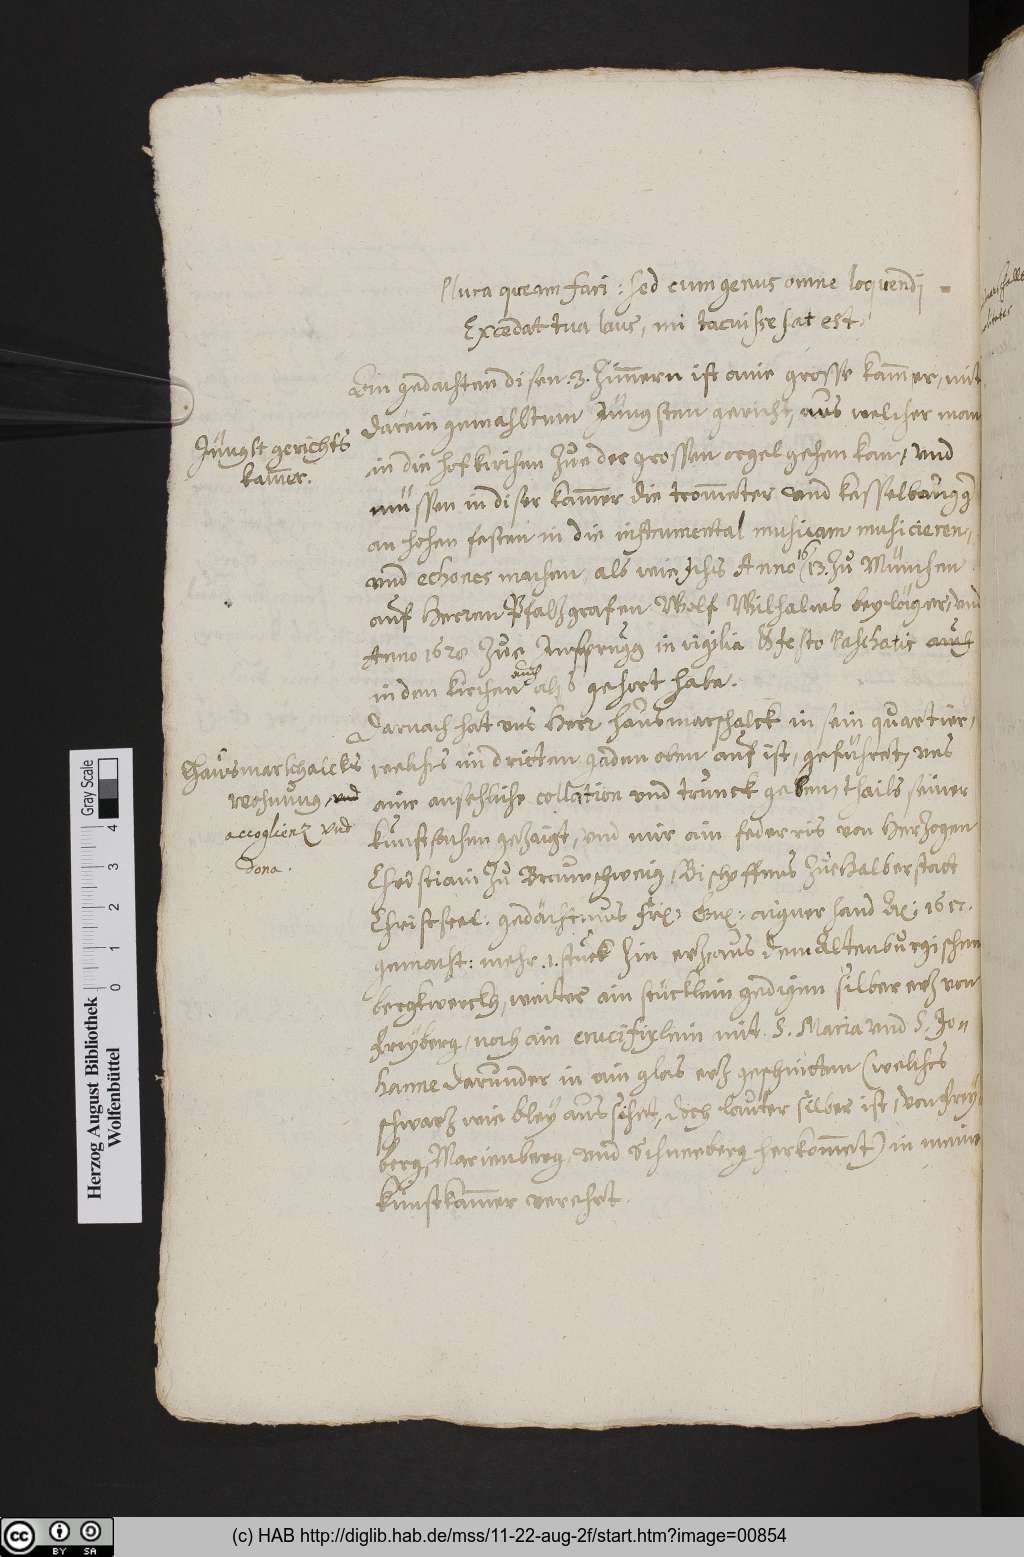 Plura queam fari: sed cum genus omne loquendi
Excedat tua laus, mi tacuisse sat est.
Bin gedachten disen .3. Zimmern ist ainie grosse kam̄er, mit
darein gemahltem Jüngsten gericht, aus welcher man
in die hofkirchen Zue der grossen orgel gehen kan, vnd
müssen in diser kam̄er die trom̄eter vnd kesselbaugg
an hohen festen in die instrumental musicam musicieren,
vnd echones machen, als wie ichs Anno 1613. Zu München
auf Herren Pfalzgrafen Wolf Wilhalms beyläger, vnd
Anno 1628 Zue Insprugg in vigilia festo Paschatis auch
in den kirchen auch also gehört habe.
Jüngst gerichts
kam̄er.
Darnach hat vns Herr hausmarschalck in sein quartier,
welches im dritten gaden oben auf ist, gefüehret, vns
aine ansehliche collation vnd trunck geben, thails seiner
kunstsachen gezaigt, vnd mir ain federris von Herzogen
Christian Zu Braunschweig, Bischoffens Zue Halberstatt
Christseel: gedächtnus aigner hand A: 1617.
gemacht: mehr .1. stuck Zin erz aus dem Altenburgischen
bergkwerckh, weiter ain stücklein gedigen silber erz von
Freyberg, noch ain crucifixlein mit S. Maria vnd S. Jo-
hanne darunder in ain glas erz geschnitten (welches
schwarz wie bley aussihet, doch lauter silber ist, von Frey
berg, Marienberg, vnd Schneeberg herkom̄et) in meine
kunstkam̄er verehrt.
Hausmarschalcks
wohnung, vnd
accoglienz vnd
Dona.
Herzog August Bibliothek
Wolfenbüttel
0 1 2 3 4
Gray Scale
(c) HAB http://diglib.hab.de/mss/11-22-aug-2f/start.htm?image=00854
cc BY SA